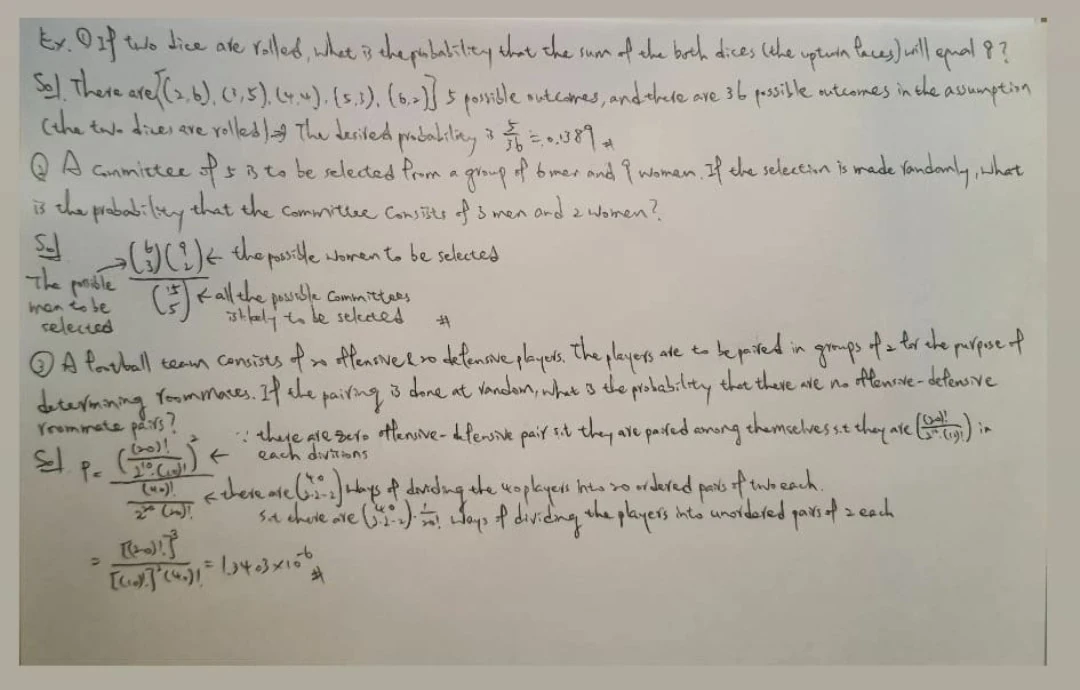 Ex. ① If two dice are rolled, what is the probability that the sum of the both dices (the upturn faces) will equal 8?
Sol. There are [(2,6), (3,5), (4,4), (5,3), (6,2)] 5 possible outcomes, and there are 36 possible outcomes in the assumption
(the two dices are rolled) ⇒ The desired probability is 5/36 ≒ 0.1389 #
② A committee of 5 is to be selected from a group of 6 men and 9 women. If the selection is made randomly, what
is the probability that the committee consists of 3 men and 2 women?
Sol
(6 3)(9 2) ← the possible women to be selected
The possible men to be selected →
(15 5) ← all the possible committees
is likely to be selected #
③ A football team consists of 20 offensive & 20 defensive players. The players are to be paired in groups of 2 for the purpose of
determining roommates. If the pairing is done at random, what is the probability that there are no offensive-defensive
roommate pairs?
∵ there are zero offensive-defensive pair s.t they are paired among themselves s.t they are ((20)!/2^10·(10)!) in
each divisions
Sol. P = ((20)!/2^10·(10)!)^2 / ((40)!/2^20(20)!) ←
← there are (40 2·2…2) ways of dividing the 40 players into 20 ordered pairs of two each.
s.t there are (40 2·2…2)·1/20! ways of dividing the players into unordered pairs of 2 each
= [(20)!]^3/[(10)!]^2(40)! = 1.3403×10^-6 #